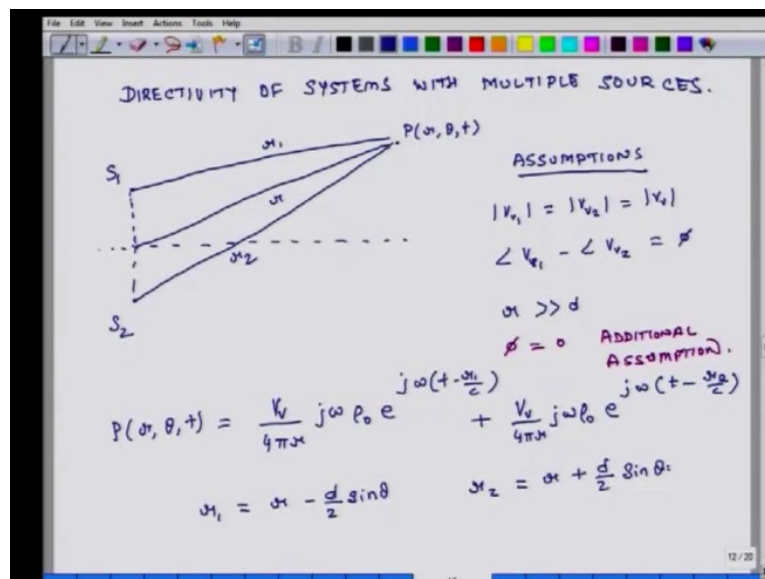 File Edit View Insert Actions Tools Help
B I
DIRECTIVITY OF SYSTEMS WITH MULTIPLE SOURCES.
P(r, θ, t)
r₁
S₁
r
r₂
S₂
ASSUMPTIONS
|Vᵥ₁| = |Vᵥ₂| = |Vᵥ|
∠Vᵥ₁ - ∠Vᵥ₂ = ø
r >> d
ø = 0 ADDITIONAL ASSUMPTION.
P(r, θ, t) = Vᵥ/4πr jωρ₀ e^jω(t-r₁/c) + Vᵥ/4πr jωρ₀ e^jω(t-r₂/c)
r₁ = r - d/2 sinθ r₂ = r + d/2 sinθ.
12/20